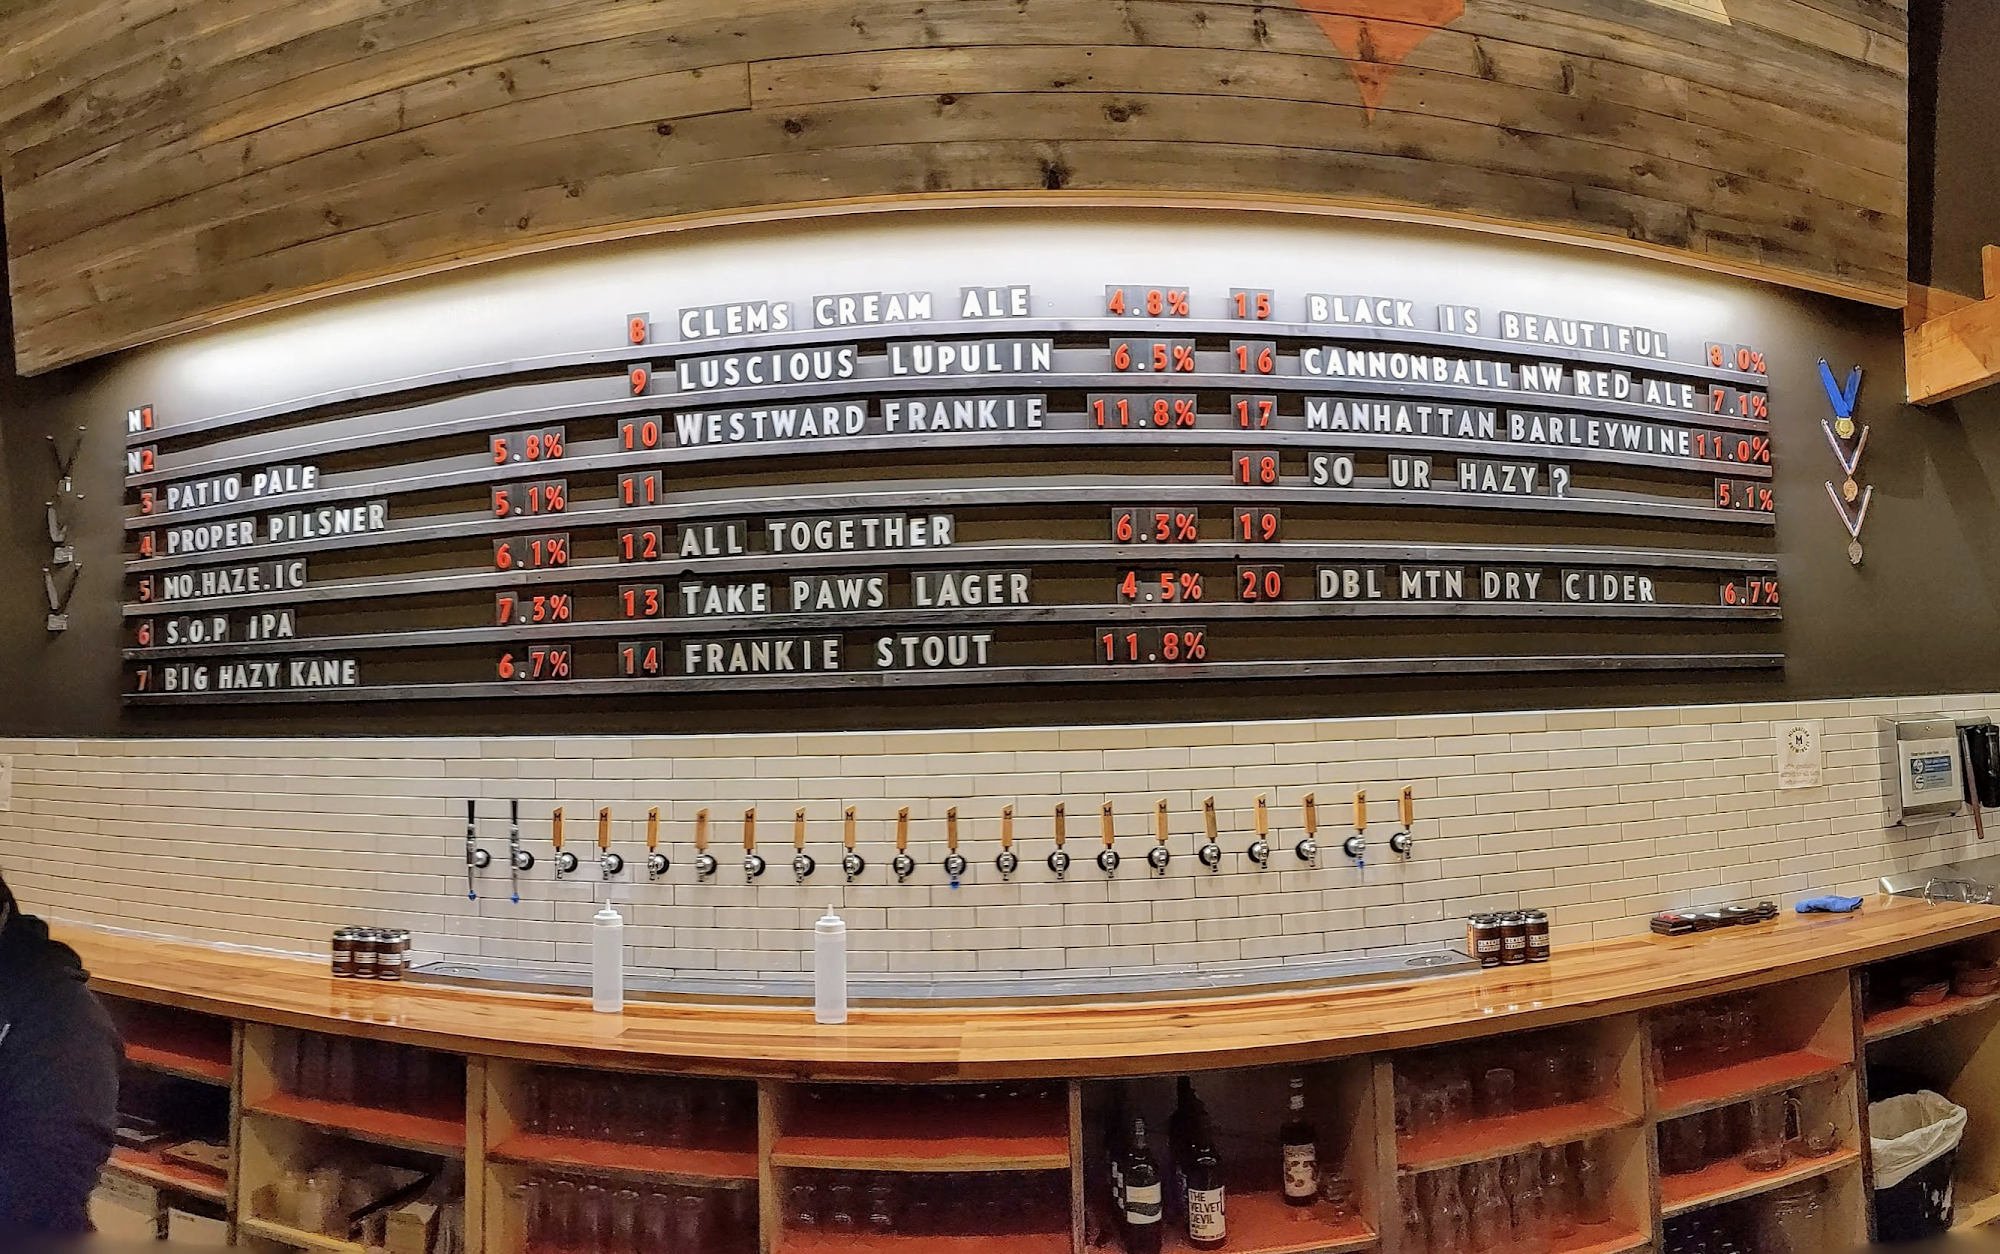 N1
N2
3 PATIO PALE 5.8%
4 PROPER PILSNER 5.1%
5 MO.HAZE.IC 6.1%
6 S.O.P IPA 7.3%
7 BIG HAZY KANE 6.7%
8 CLEMS CREAM ALE 4.8%
9 LUSCIOUS LUPULIN 6.5%
10 WESTWARD FRANKIE 11.8%
11
12 ALL TOGETHER 6.3%
13 TAKE PAWS LAGER 4.5%
14 FRANKIE STOUT 11.8%
15 BLACK IS BEAUTIFUL 8.0%
16 CANNONBALL NW RED ALE 7.1%
17 MANHATTAN BARLEYWINE 11.0%
18 SO UR HAZY ? 5.1%
19
20 DBL MTN DRY CIDER 6.7%
M
THE
VELVET
DEVIL